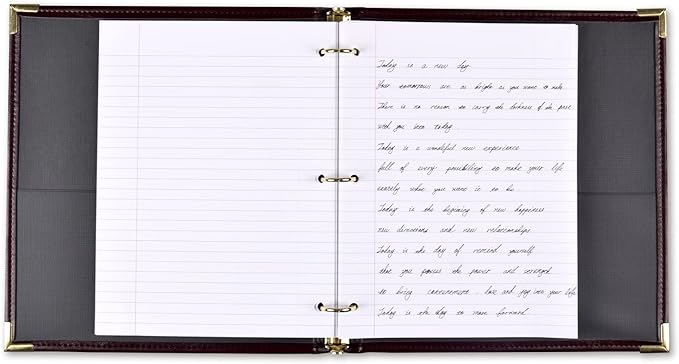 Today is a new day.
Your tomorrows are as bright as you want to make
There is no reason to carry the darkness of the past
with you into today.
Today is a wonderful new experience
full of every possibility to make your life
exactly what you want it to be
Today is the beginning of new happiness
new directions and new relationships
Today is the day of remind yourself
that you possess the power and strength
to bring contentment, love and joy into your life
Today is the day to move forward.